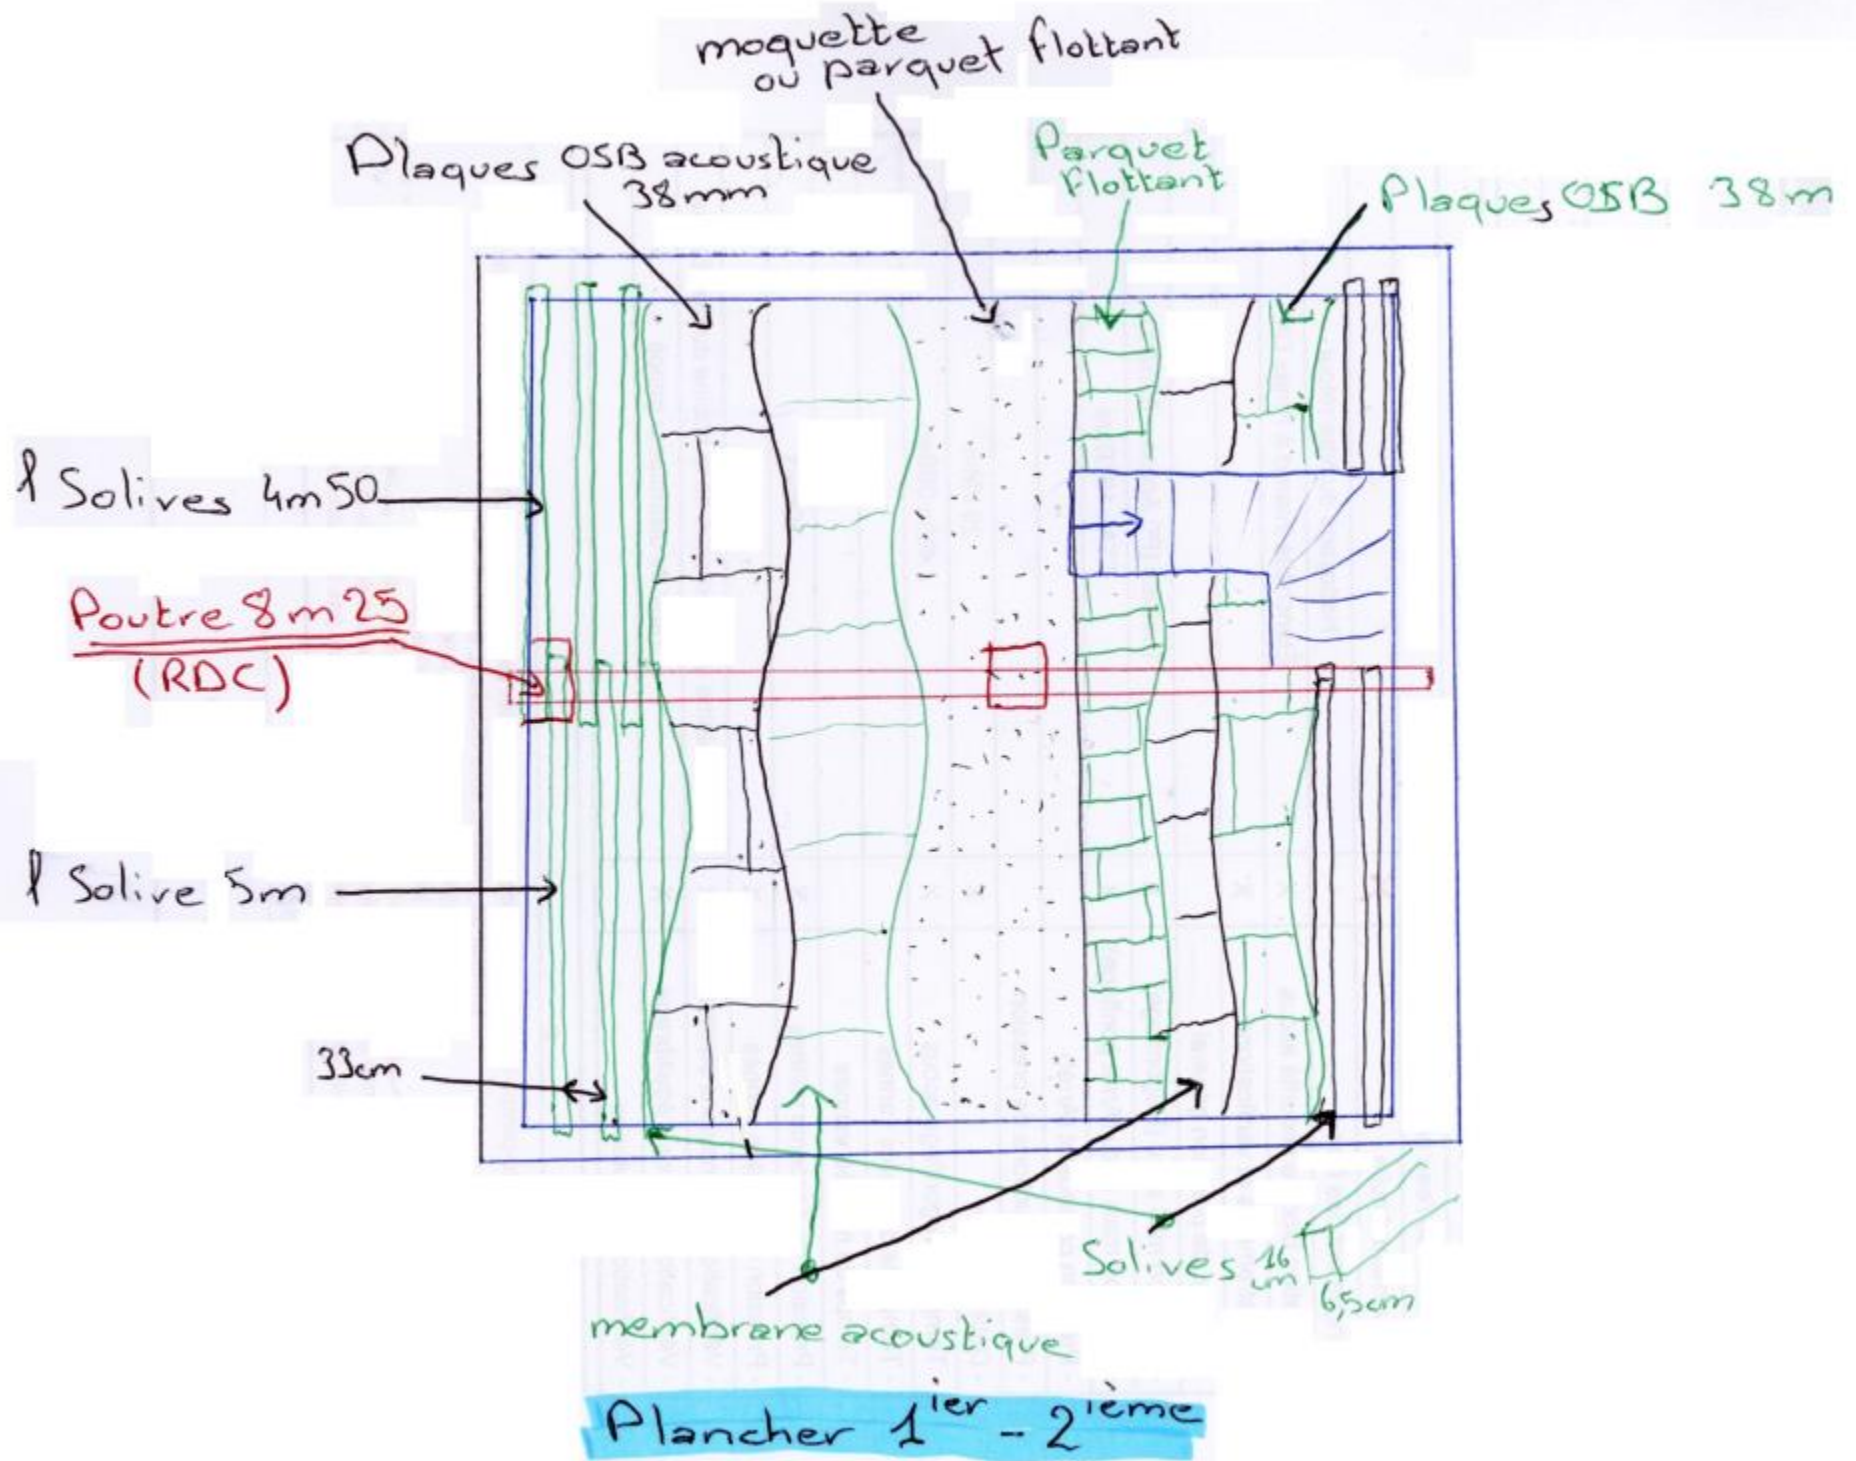 moquette
ou parquet flottant
Plaques OSB acoustique
38mm
Parquet
flottant
Plaques OSB 38m
l Solives 4m50
Poutre 8m25
(RDC)
l Solive 5m
33cm
Solives 16
cm
6,5cm
membrane acoustique
Plancher 1ier - 2ième